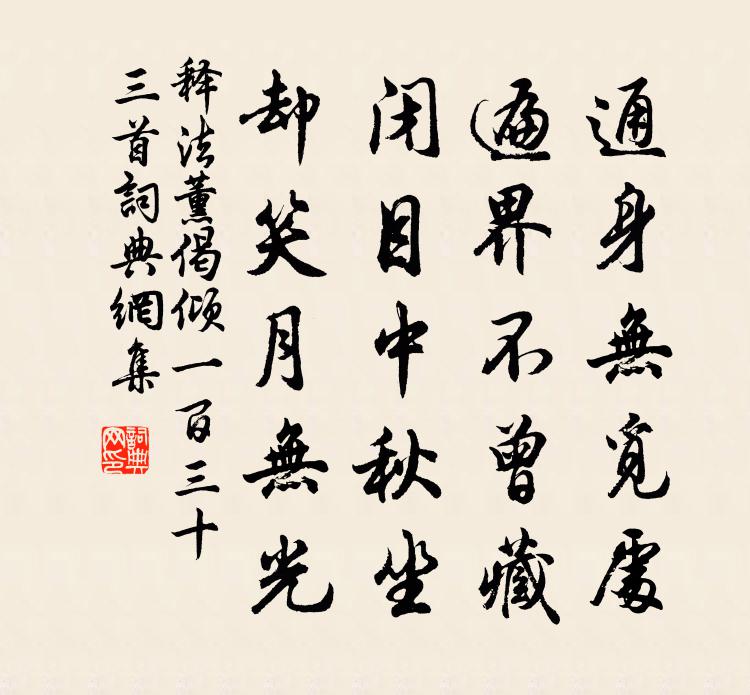 通身無覓處
遍界不曾藏
閉目中秋坐
却笑月無光
释法薰偈倾一百三十
三首詞典網集
詞典網印